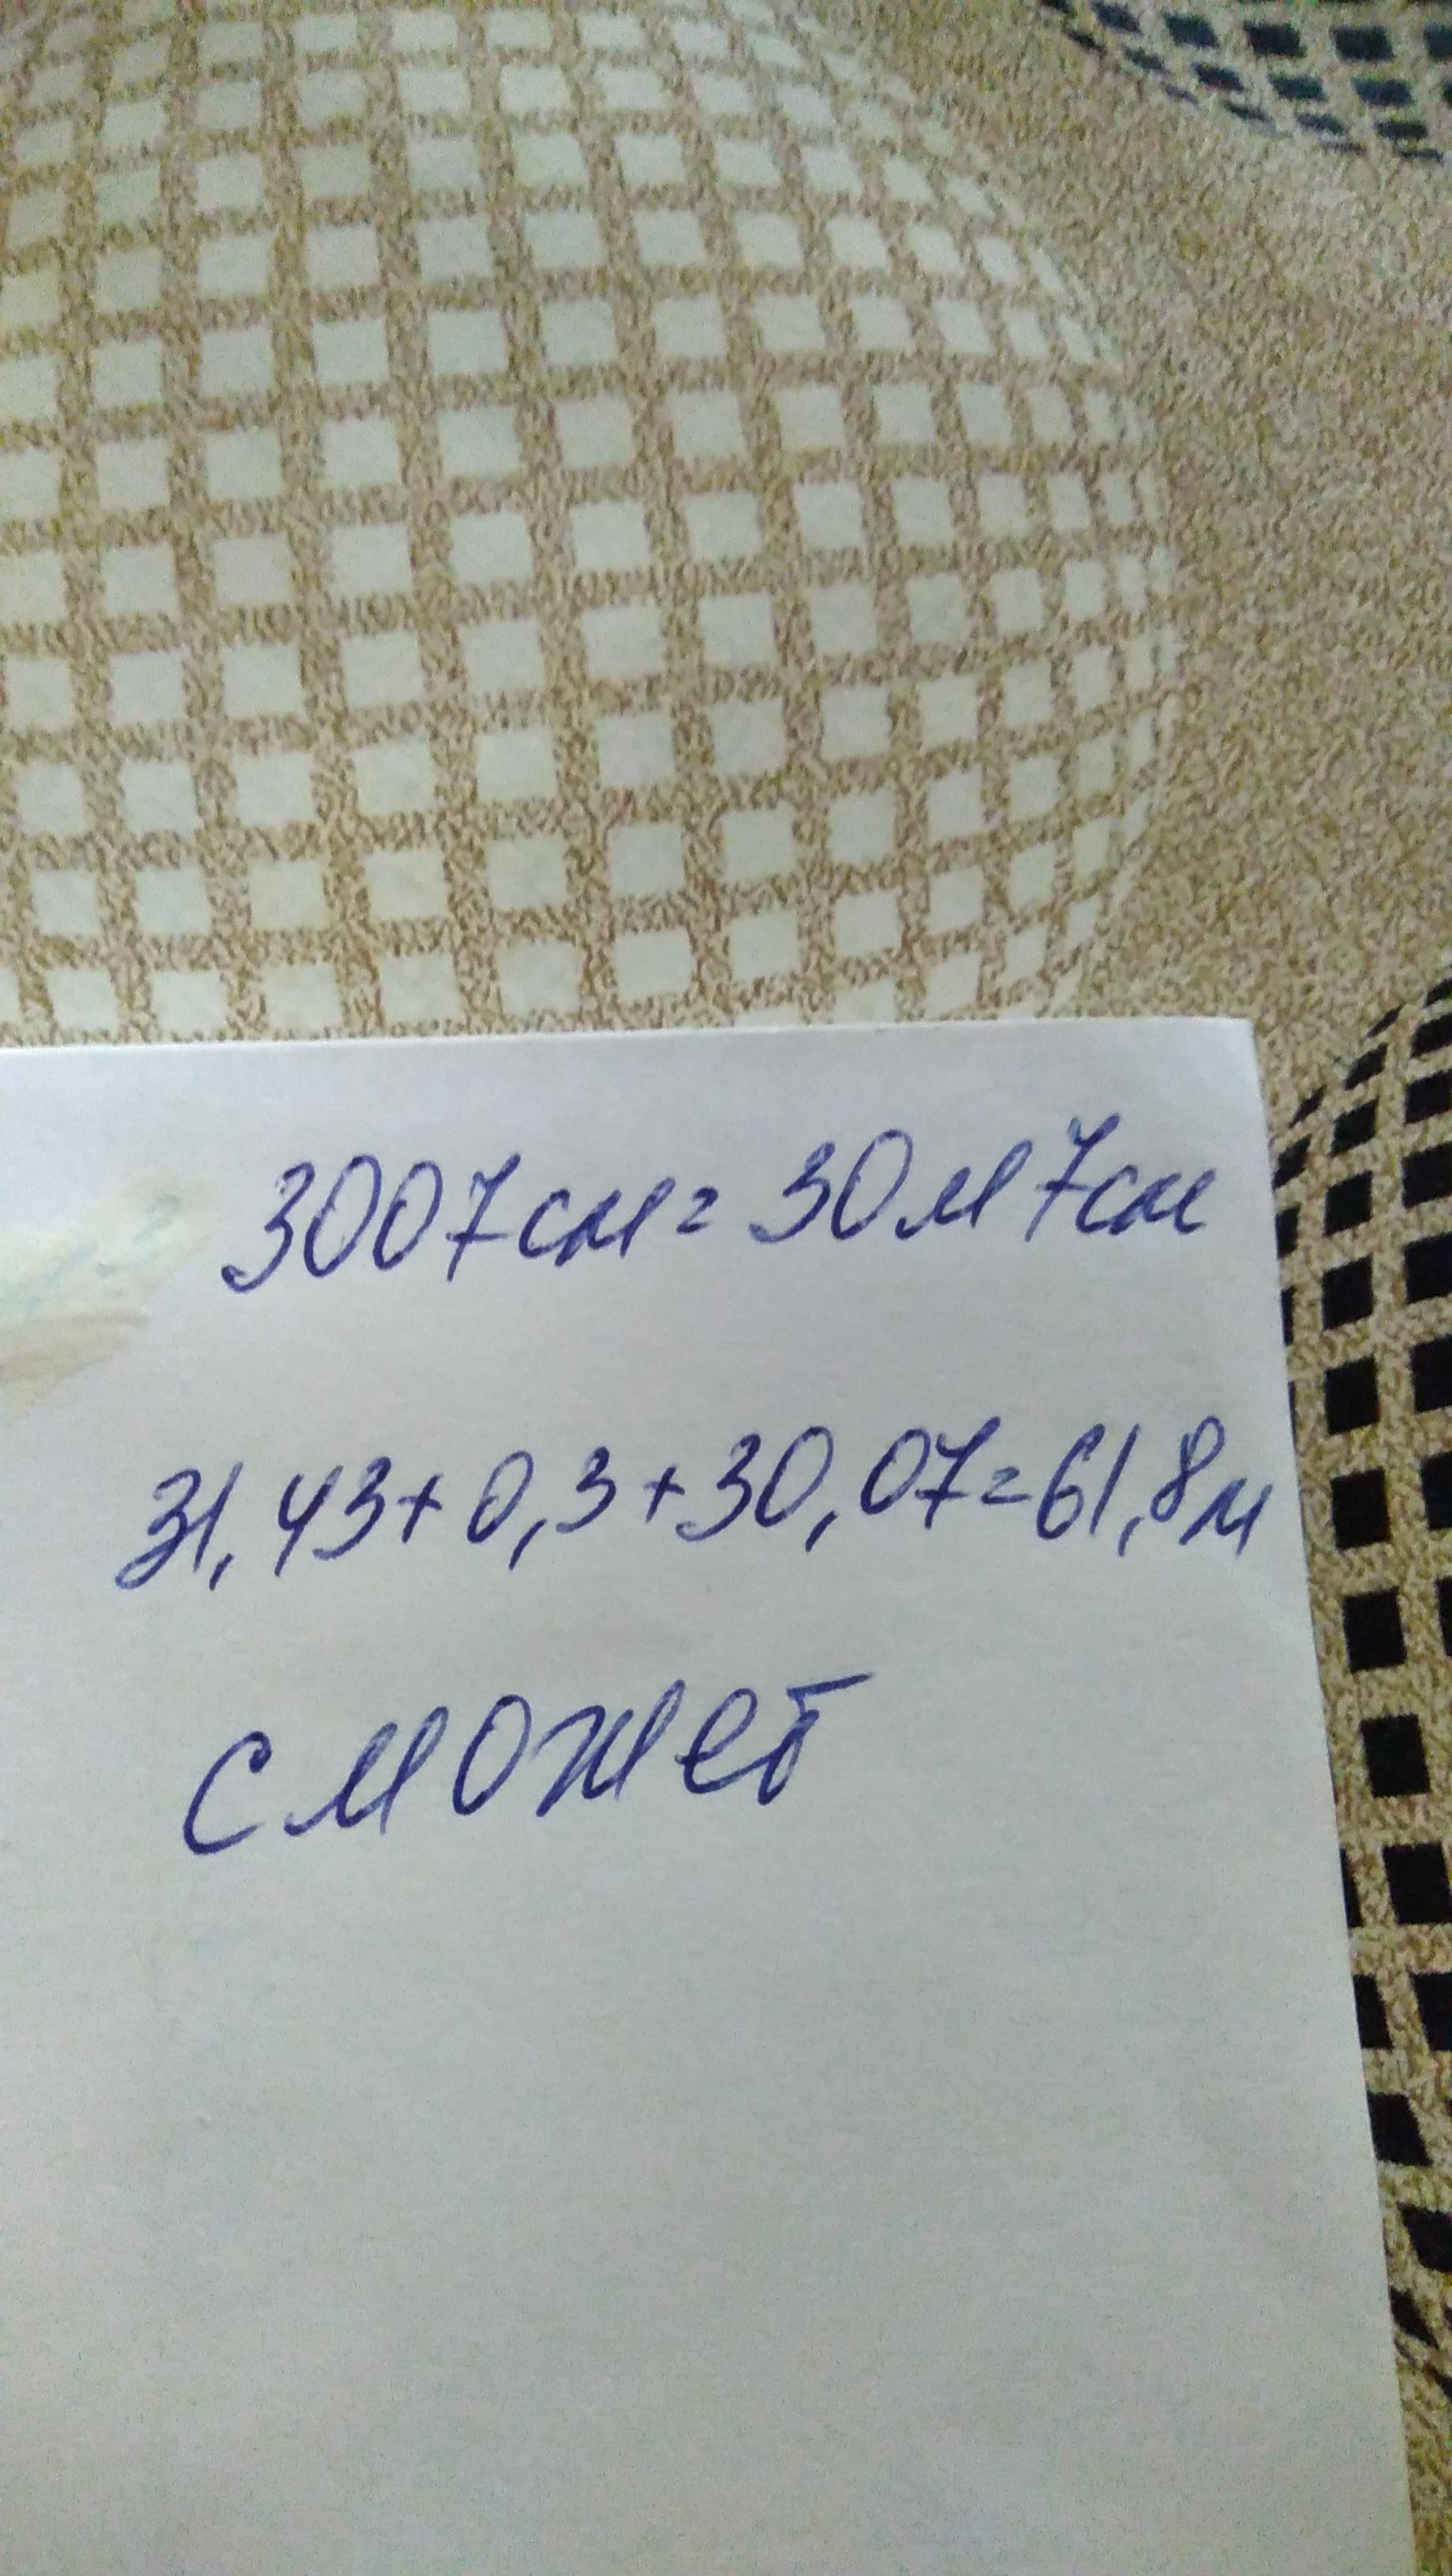 3007см = 30м 7см
31,43+0,3+30,07=61,8м
сможет